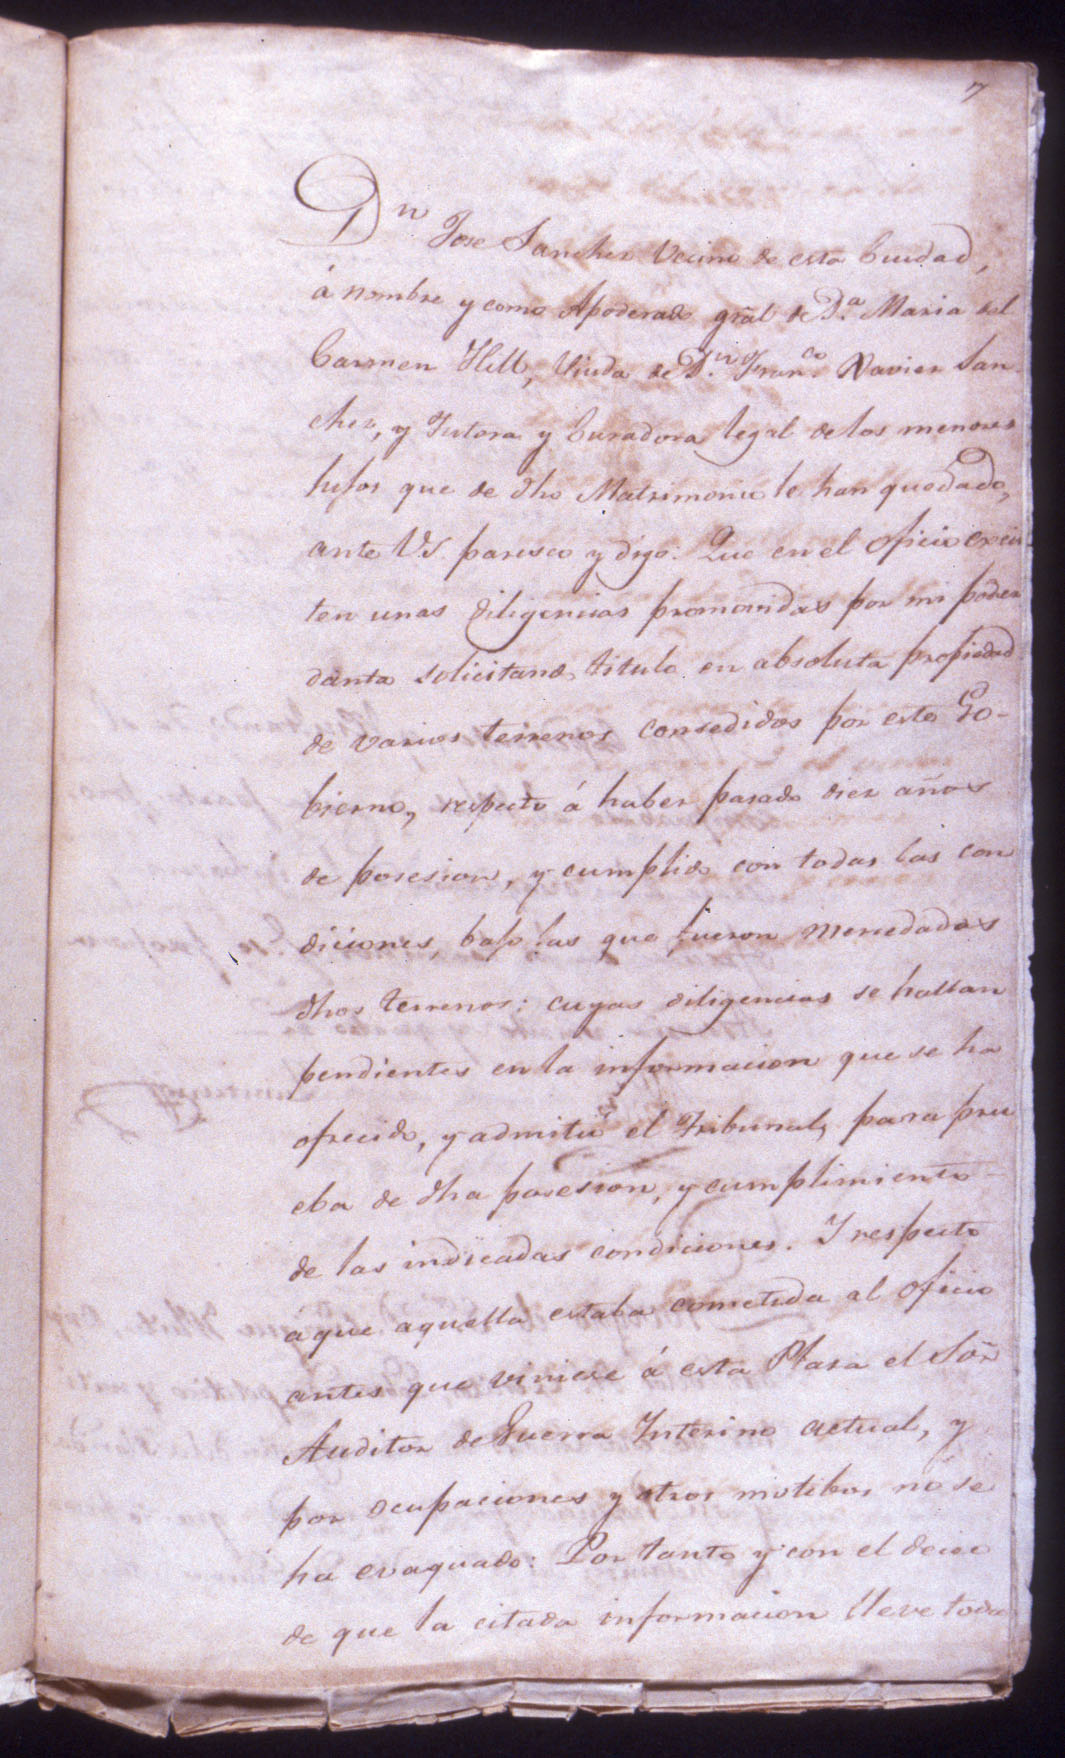 7
Dn Jose Sanchez Vecino de esta Ciudad,
á nombre y como Apoderado gral de Da. Maria del
Carmen Hill, Viuda de Dn. Franco. Xavier San
chez, y Tutora y Curadora legal de los menores
hijos que de dho Matrimonio le han quedado,
ante VS. paresco y digo: Que en el oficio exîs
ten unas diligencias promovidas por mi poder
danta solicitando titulo en absoluta propiedad
de varios terrenos consedidos por este Go-
bierno, respecto á haber pasado diez años
de posesion, y cumplido con todas las con
diciones, bajo las que fueron mercedados
dhos terrenos: cuyas diligencias se hallan
pendientes en la informacion que se ha
ofrecido, y admitió el Tribunal, para pru
eba de dha posesion, y cumplimiento
de las indicadas condiciones. Y respecto
á que aquella estaba cometida al oficio
antes que viniese á esta Plaza el Sor
Auditor de Guerra Interino actual, y
por ocupaciones y otros motibos no se
ha evaquado: Por tanto y con el deseo
de que la citada informacion lleve toda